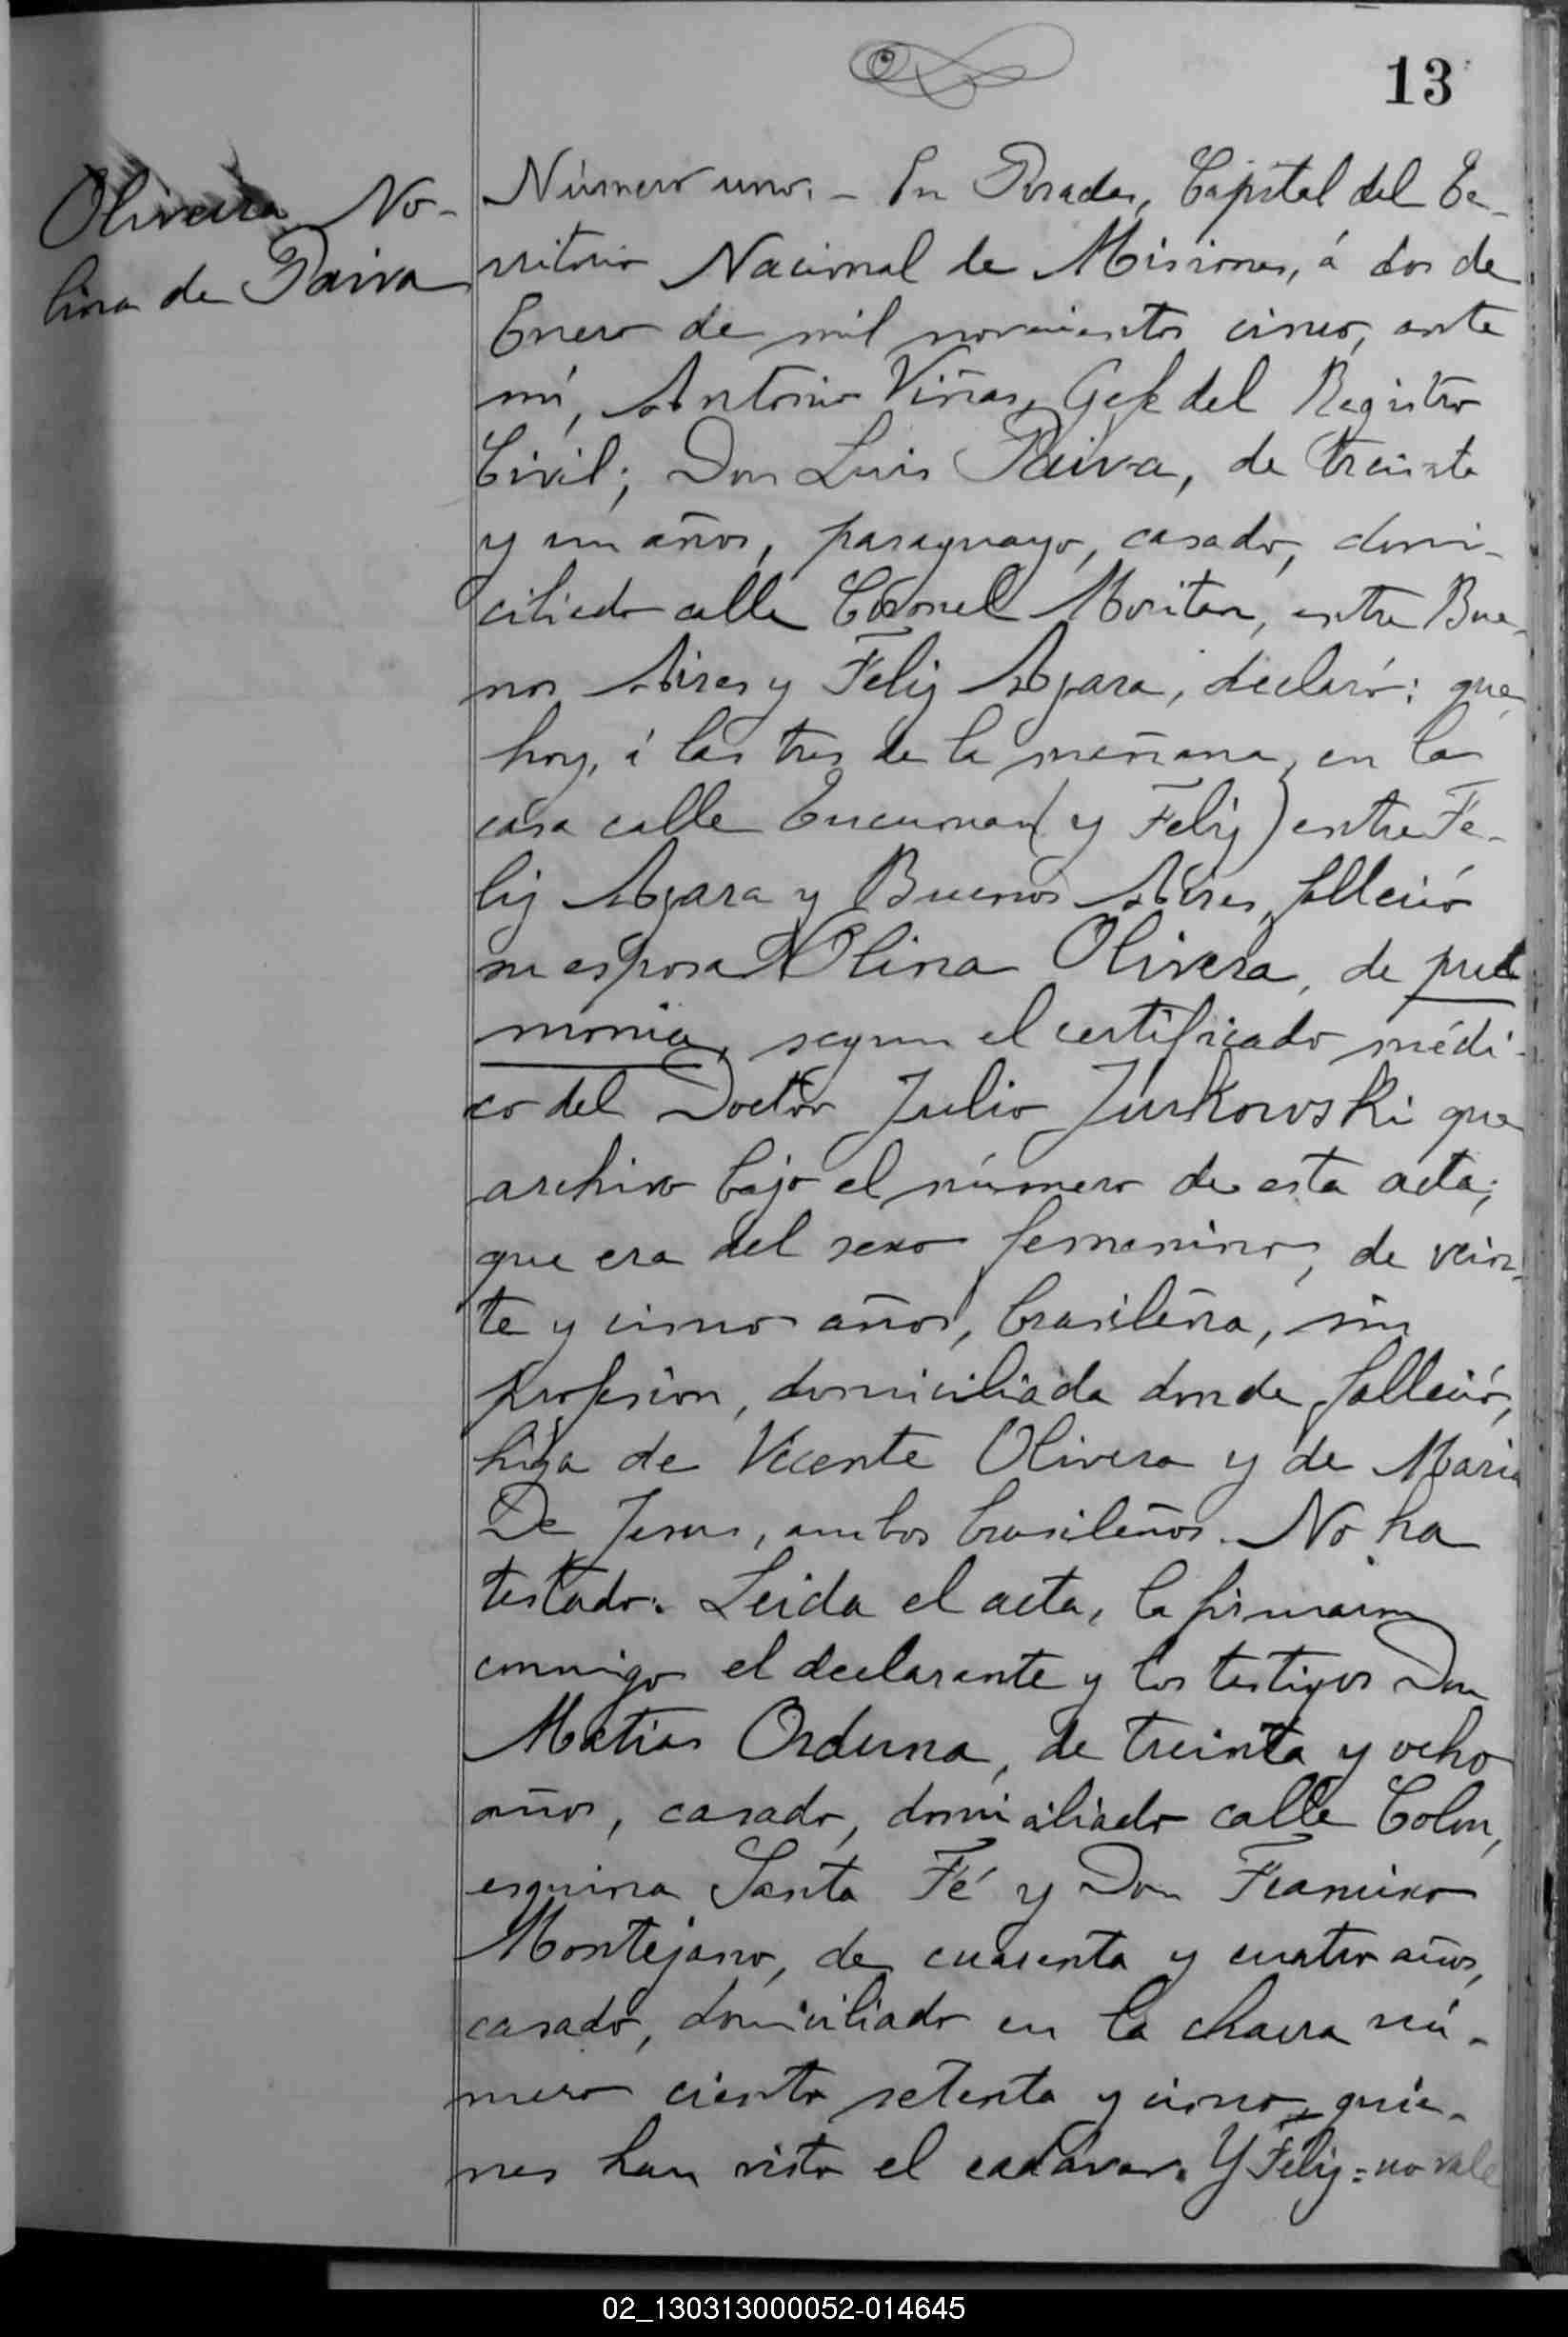 13
Oliveira No-
lina de Paiva
Número uno. - En Posadas, Capital del Te-
rritorio Nacional de Misiones, á dos de
Enero de mil novecientos cinco, ante
mí, Antonio Viñas, Gefe del Registro
Civil; Don Luis Paiva, de treinta
y un años, paraguayo, casado, domi-
ciliado calle Coronel Moritan, entre Bue-
nos Aires y Feliz Azara, declaró: que
hoy, á las tres de la mañana, en la
casa calle Tucuman (y Feliz) entre Fe-
liz Azara y Buenos Aires, falleció
su esposa Nolina Olivera, de pul
monia, segun el certificado médi-
co del Doctor Julio Jurkowski que
archivo bajo el número de esta acta;
que era del sexo femenino, de vein-
te y cinco años, brasileña, sin
profesion, domiciliada donde falleció,
hija de Vicente Olivera y de Maria
De Jesus, ambos brasileños. No ha
testado. Leida el acta, la firmaron
conmigo el declarante y los testigos Don
Matias Orduna, de treinta y ocho
años, casado, domiciliado calle Colon,
esquina Santa Fé y Don Francisco
Montejano, de cuarenta y cuatro años,
casado, domiciliado en la chacra nú-
mero ciento setenta y cinco, quie-
nes han visto el cadáver. Y Feliz = no vale
02_130313000052-014645